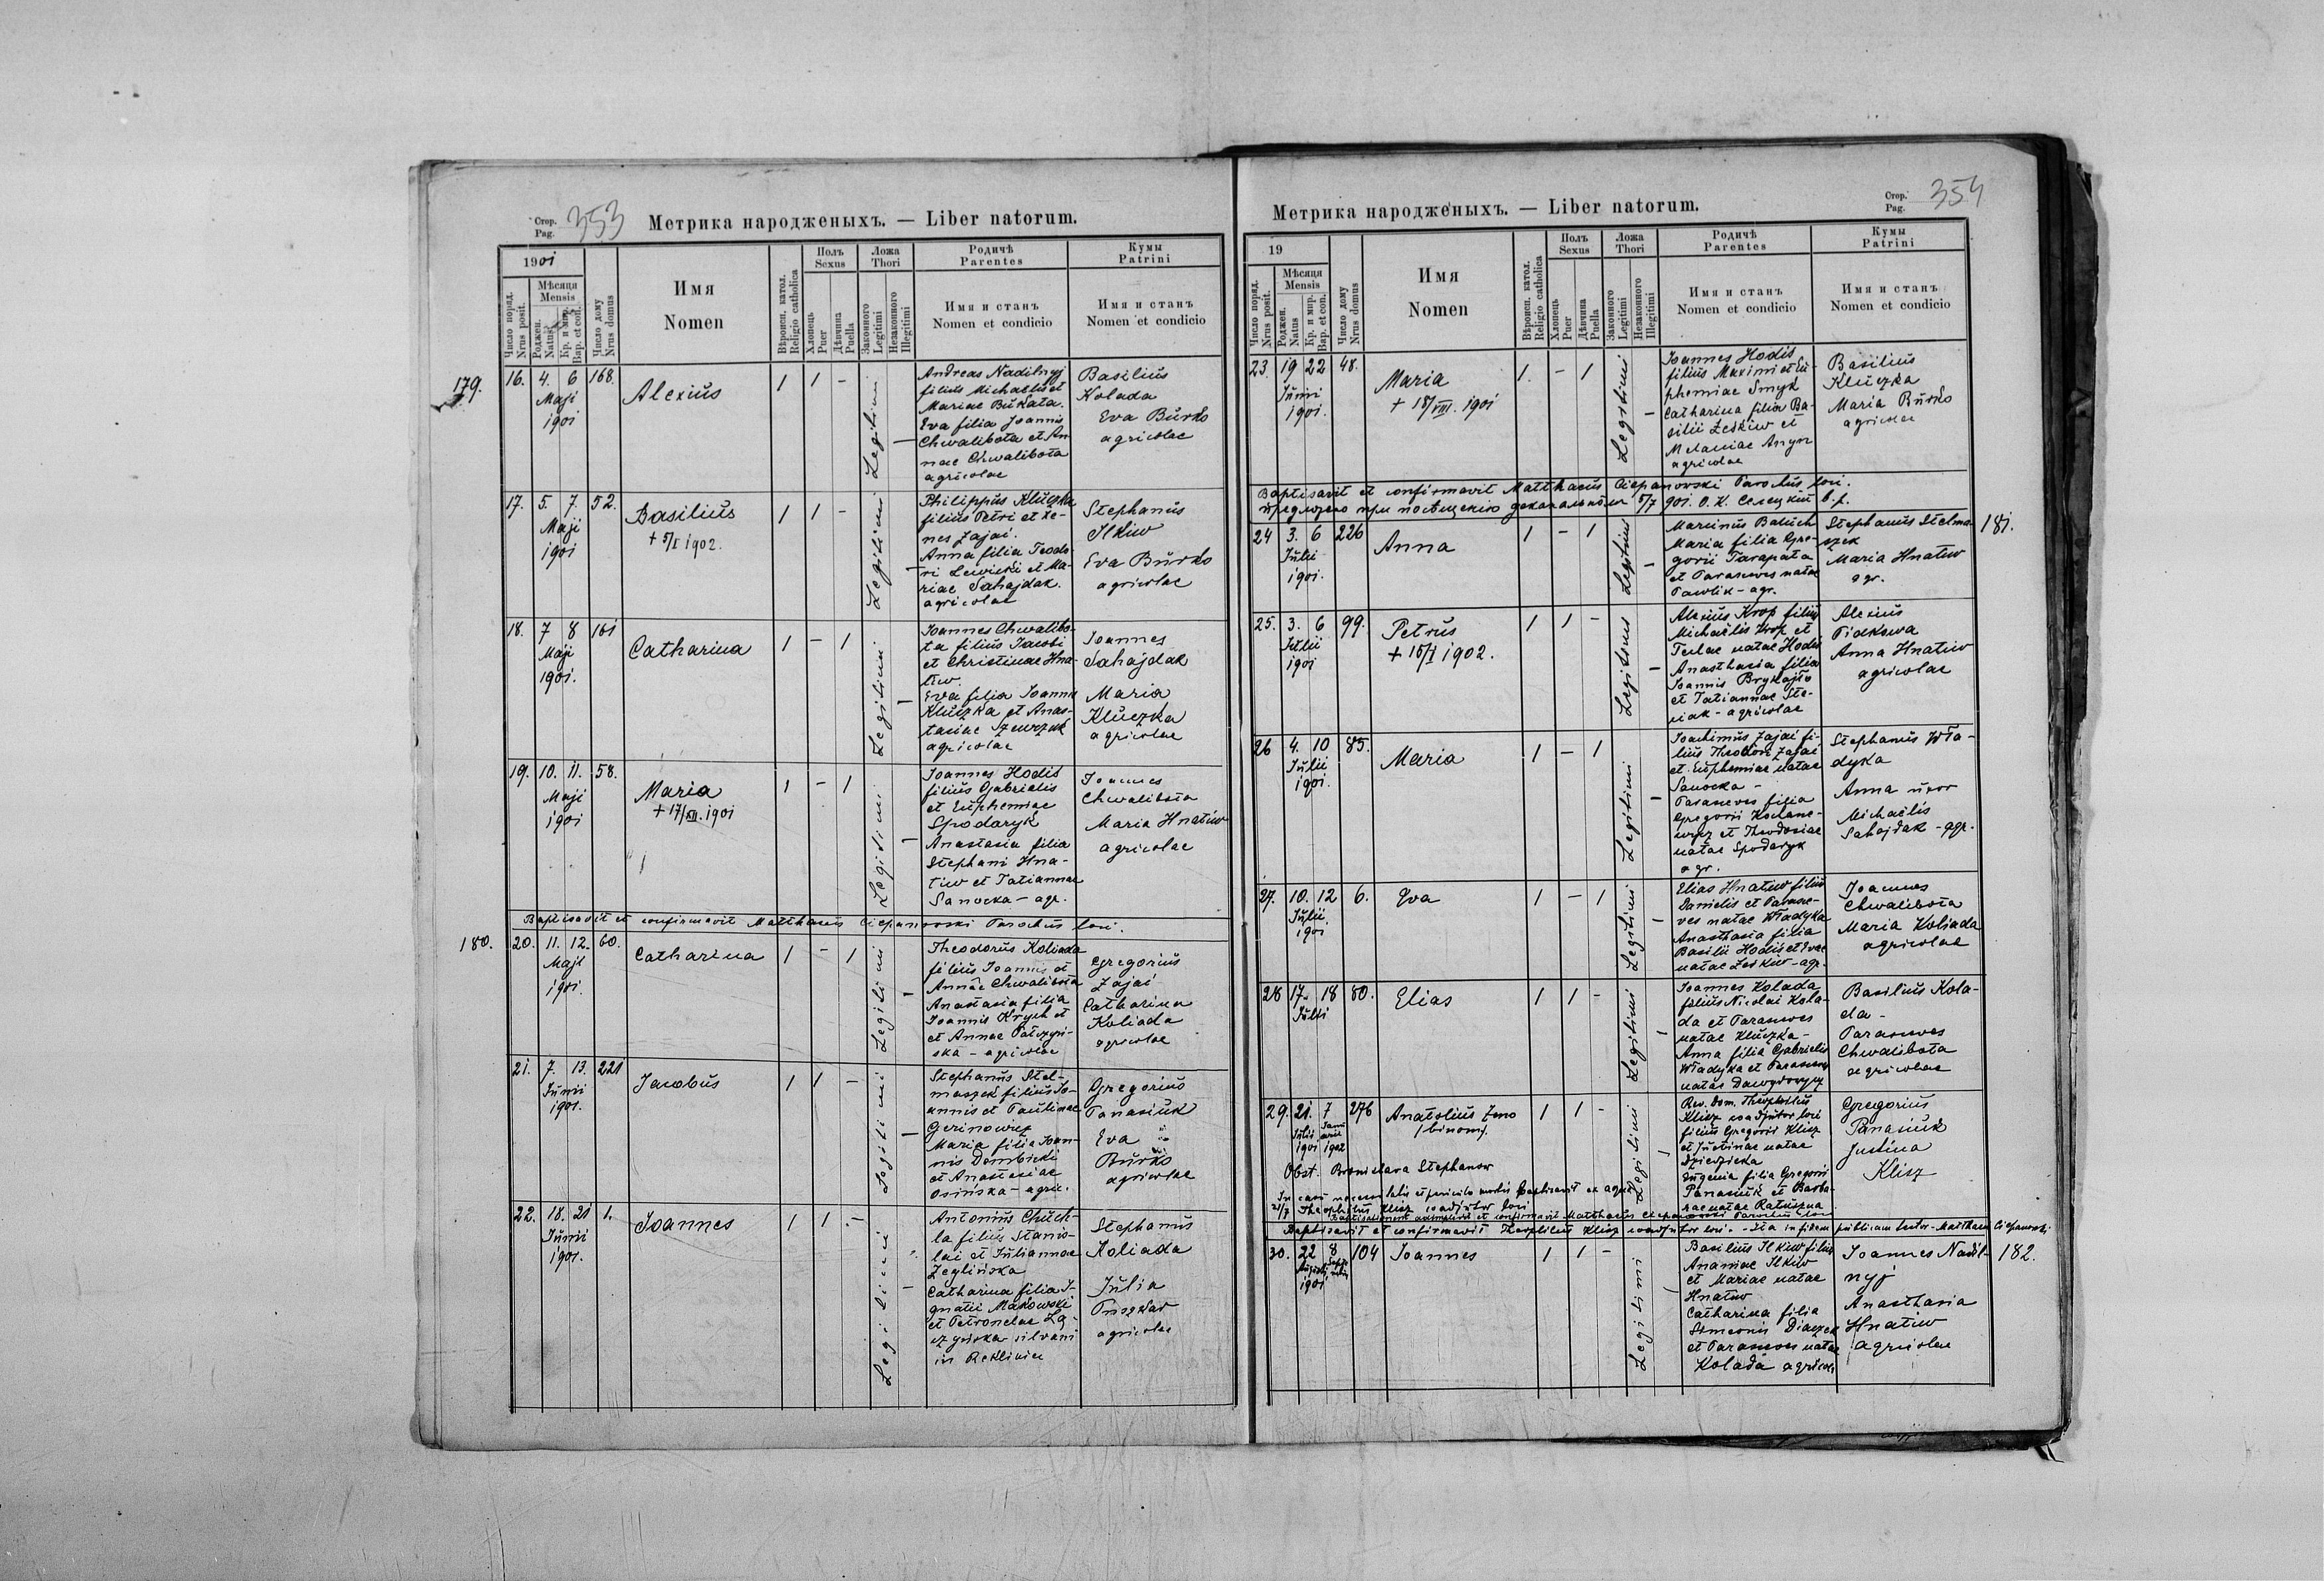 Стор.
Pag.
353
Метрика народженыхъ. — Liber natorum.
1901
Число поряд.
Nrus posit.
Мѣсяця
Mensis
Роджен.
Natus
Кр. и мир.
Bap. et con.
Число дому
Nrus domus
Имя
Nomen
Вѣроисп. катол.
Religio catholica
Полъ
Sexus
Хлопець
Puer
Дѣвчина
Puella
Ложа
Thori
Законного
Legitimi
Незаконного
Illegitimi
Родичѣ
Parentes
Имя и станъ
Nomen et condicio
Кумы
Patrini
Имя и станъ
Nomen et condicio
179.
16. 4. 6 168.
Maji
1901
Alexius
1 1 -
Legitimi
Andreas Nadilnyj
filius Michaelis et
Mariae Bukata.
Eva filia Joannis
Chwalibota et An
nae Chwalibota
agricolae
Basilius
Kolada
Eva Burko
agricolae
17. 5. 7. 52.
Maji
1901
Basilius
+ 5/I 1902.
1 1 -
Legitimi
Philippus Kluczka
filius Petri et Xe-
nes Zajai.
Anna filia Teodo
ri Lewicki et Ma-
riae Sahajdak.
agricolae
Stephanus
Ilkiw
Eva Burko
agricolae
18. 7 8 161
Maji
1901.
Catharina
1 - 1
Legitimi
Joannes Chwalibo-
ta filius Jacobi
et Christinae Hna-
tiw.
Eva filia Joannis
Kluczka et Anas-
tasiae
agricolae
Joannes
Sahajdak
Maria
Kluczka
agricolae
19. 10. 11. 58.
Maji
1901
Maria
+ 17/XII. 1901
1 - 1
Legitimi
Joannes Hodis
filius Gabrielis
et Euphemiae
Spodaryk
Anastasia filia
Stephani Hna-
tiw et Tatiannae
Sanocka - agr.
Joannes
Chwalibota
Maria Hnatiw
agricolae
Baptisavit et confirmavit Matthaeus Ciepanowski Parochus loci.
180.
20. 11. 12. 60.
Maji
1901.
Catharina
1 - 1
Legitimi
Theodorus Koliada
filius Joannis et
Annae Chwalibota
Anastasia filia
Joannis Krych et
et Annae
ska - agricolae
Gregorius
Zajai
Catharina
Koliada
agricolae
21. 7. 13. 221
Junii
1901.
Jacobus
1 1 -
Legitimi
Stephanus Stel-
maszek filius Jo-
annis et Paulinae
Gerinowicz
Maria filia Joan-
nis Dembicki
et Anastasiae
Osińska - agric.
Gregorius
Panasiuk
Eva
Burko
agricolae
22. 18. 21 1.
Junii
1901.
Joannes
1 1 -
Legitimi
Antonius Chuch-
la filius Stanis-
lai et Juliannae
Zeglińska
Catharina filia I-
gnatii Makowski
et Petronelae
silvani
in Reklinie
Stephanus
Koliada
Julia
agricolae
Стор.
Pag.
354
Метрика народженыхъ. — Liber natorum.
19
Число поряд.
Nrus posit.
Мѣсяця
Mensis
Роджен.
Natus
Кр. и мир.
Bap. et con.
Число дому
Nrus domus
Имя
Nomen
Вѣроисп. катол.
Religio catholica
Полъ
Sexus
Хлопець
Puer
Дѣвчина
Puella
Ложа
Thori
Законного
Legitimi
Незаконного
Illegitimi
Родичѣ
Parentes
Имя и станъ
Nomen et condicio
Кумы
Patrini
Имя и станъ
Nomen et condicio
23 19 22 48.
Junii
1901.
Maria
+ 18/VIII. 1901
1. - 1
Legitimi
Joannes Hodis
filius Maximi et Eu-
phemiae Smyk
Catharina filia Ba-
silii Zeskiw et
Melaniae
agricolae
Basilius
Kluczka
Maria Burko
agricolae
Baptisavit et confirmavit Matthaeus Ciepanowski Parochus loci.
предложено при посѣщенію деканальнôм 5/7 901. О. К. Селецкій
24 3. 6 226
Julii
1901.
Anna
1 - 1
Legitimi
Marcinus Baluch
Maria filia Gre-
gorii Tarapata
et Parasceves natae
Pawlik - agr.
Stephanus Stelma-
szek
Maria Hnatiw
agr.
181.
25. 3. 6 99.
Julii
1901
Petrus
+ 15/I 1902.
1 1 -
Legitimi
Alexius Krop filius
Michaelis Krop et
Teclae natae Hodis
Anasthasia filia
Joannis Brykajło
et Tatiannae Ste-
ciak - agricolae
Alexius
Pidkowa
Anna Hnatiw
agricolae
26 4. 10 85.
Julii
1901.
Maria
1 - 1
Legitimi
Joachimus Zajai fi-
lius Theodori Zajai
et Euphemiae natae
Sanocka -
Parasceves filia
Gregorii Kochane-
wycz et Theodosiae
natae Spodaryk
agr.
Stephanus Wła-
dyka
Anna uxor
Michaelis
Sahajdak - agr.
27. 10. 12 6.
Julii
1901
Eva
1 - 1
Legitimi
Elias Hnatiw filius
Danielis et Parasce-
ves natae Władyka
Anasthasia filia
Basilii Hodis et Evae
natae Zeskiw - agr.
Joannes
Chwalibota
Maria Koliada
agricolae
28 17. 18 80.
Julii
Elias
1 1 -
Legitimi
Joannes Kolada
filius Nicolai Kola-
da et Parasceves
natae Kluczka -
Anna filia Gabrielis
Władyka et Parasceves
natae Dawydowycz
Basilius Kola-
da -
Parasceves
Chwalibota
agricolae
29. 21. 7 276
Julii Januarii
1901 1902
Anatolius Zeno
(binom).
1 1 -
Legitimi
Rev. Dom. Theophilus
Klisz coadjutor loci
filius Gregorii Klisz
et Justinae natae
Eugenia filia Gregorii
Panasiuk et Barba-
rae natae
Gregorius
Panasiuk
Justina
Klisz
Obst. Bronislava Stephanow
In casu necessitatis et periculo mortis baptisavit ex aqua
21/7 Theophilus Klisz coadjutor loci
Baptisationem adimplevit et confirmavit Matthaeus Ciepanowski Parochus loci
Baptisavit et confirmavit Theophilus Klisz coadjutor loci. - Ita in fidem publicam testor - Matthaeus Ciepanowski
30. 22 8 104
Augusti Septembris
1901
Joannes
1 1 -
Legitimi
Basilius Ilkiw filius
Ananiae Ilkiw
et Mariae natae
Hnatiw
Catharina filia
Simeonis Diaczek
et Parasceves natae
Kolada agricolae
Joannes Nadil-
nyj
Anasthasia
Hnatiw
agricolae
182.